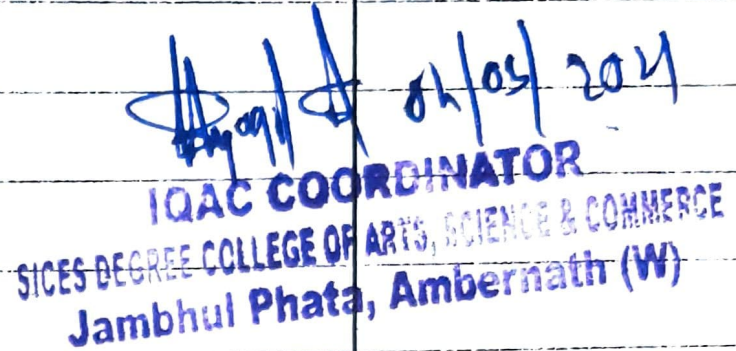 IQAC COORDINATOR
SICES DEGREE COLLEGE OF ARTS, SCIENCE & COMMERCE
Jambhul Phata, Ambernath (W)